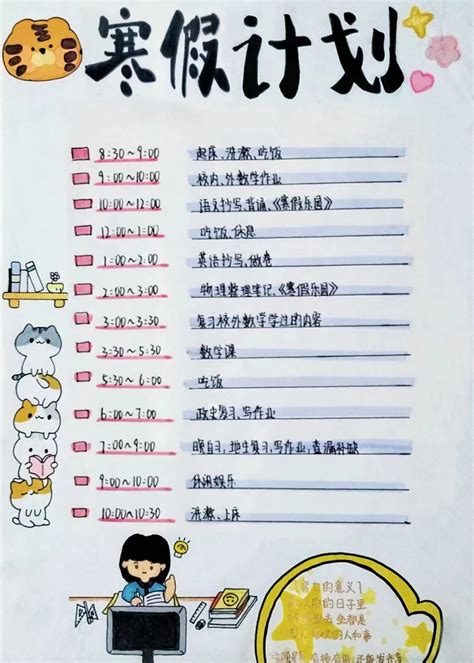 寒假计划
8:30~9:00 起床、洗漱、吃饭
9:00~10:00 校内、外数学作业
10:00~12:00 语文抄写、背诵、《寒假乐园》
12:00~1:00 吃饭、休息
1:00~2:00 英语抄写、做卷
2:00~3:00 物理整理笔记、《寒假乐园》
3:00~3:30 复习校外数学学过的内容
3:30~5:30 数学课
5:30~6:00 吃饭
6:00~7:00 政史复习、写作业
7:00~9:00 晚自习、地生复习、写作业、查漏补缺
9:00~10:00 休闲娱乐
10:00~10:30 洗漱、上床
的意义
的日子里
都是
的人和事